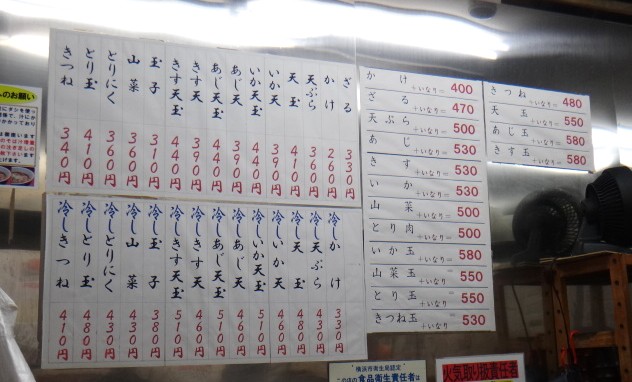 ざる 330円
かけ 260円
天ぷら 360円
天玉 410円
いか天 390円
いか天玉 440円
あじ天 390円
あじ天玉 440円
きす天 390円
きす天玉 440円
玉子 310円
山菜 360円
とりにく 360円
とり玉 410円
きつね 340円
冷しかけ 330円
冷し天ぷら 430円
冷し天玉 480円
冷しいか天 460円
冷しいか天玉 510円
冷しあじ天 460円
冷しあじ天玉 510円
冷しきす天 460円
冷しきす天玉 510円
冷し玉子 380円
冷し山菜 430円
冷しとりにく 430円
冷しとり玉 480円
冷しきつね 410円
かけ+いなり= 400
ざる+いなり= 470
天ぷら+いなり= 500
あじ+いなり= 530
きす+いなり= 530
いか+いなり= 530
山菜+いなり= 500
とり肉+いなり= 500
いか玉+いなり= 580
山菜玉+いなり= 550
とり玉+いなり= 550
きつね玉+いなり= 530
きつね+いなり= 480
天玉+いなり= 550
あじ玉+いなり= 580
きす玉+いなり= 580
のお願い
横浜市衛生局認定
食品衛生責任者は
火気取り扱責任者